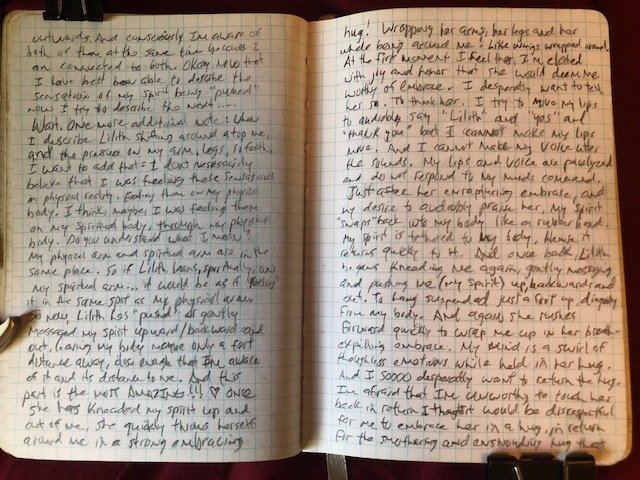 outwards. And consciously I'm aware of
both of them at the same time because I
am connected to both. Okay now that
I have best been able to describe the
sensation of my spirit being "pushed"
now I try to describe the next....
Wait. One more additional note: when
I describe Lilith shifting around atop me,
and the pressure on my arm, legs, so forth.
I want to add that I don't necessarily
believe that I was feeling those sensations
in physical reality. Feeling them on my physical
body. I think, maybe, I was feeling them
on my spiritual body, through my physical
body. Do you understand what I mean?
My physical arm and spiritual arm are in the
same place. So if Lilith leans, spiritually, on
my spiritual arm... it would be as if "feeling"
it in the same spot as my physical arm.
So now, Lilith has "pushed" or gently
massaged my spirit upward/backward and
out, leaving my body maybe only a foot
distance away, close enough that I'm aware
of it and its distance to me. And this
part is the MOST AMAZING!!! ♡ once
she has kneaded my spirit up and
out of me, she quickly throws herself
around me in a strong embracing
hug! Wrapping her arms, her legs and her
whole being around me. Like wings wrapped around.
At the first moment I feel this, I'm elated
with joy and honor that she would deem me
worthy of embrace. I desperatly want to tell
her so. To thank her. I try to move my lips
to audibly say "Lilith" and "yes" and
"thank you" but I cannot make my lips
move. And I cannot make my voice utter
the sounds. My lips and voice are paralyzed
and do not respond to my minds command.
Just after her enrapturing embrace, and
my desire to audibly praise her, my spirit
"snaps" back into my body like a rubber band.
My spirit is tethered to my body, hence it
returns quickly to it. And once back Lilith
begins kneading me again, gently massaging
and pushing me (my spirit) up, backwards and
out. To hang suspended just a foot up, diagonally
from my body. And again she rushes
forward quickly to wrap me up in her breath-
expelling embrace. My mind is a swirl of
thoughtless emotions while held in her hug.
And I SOOOO desperatly want to return the hug.
I'm afraid that I'm unworthy to touch her
back in return. I thought it would be disrespectful
for me to embrace her in a hug, in return
for the smothering and enshrouding hug that